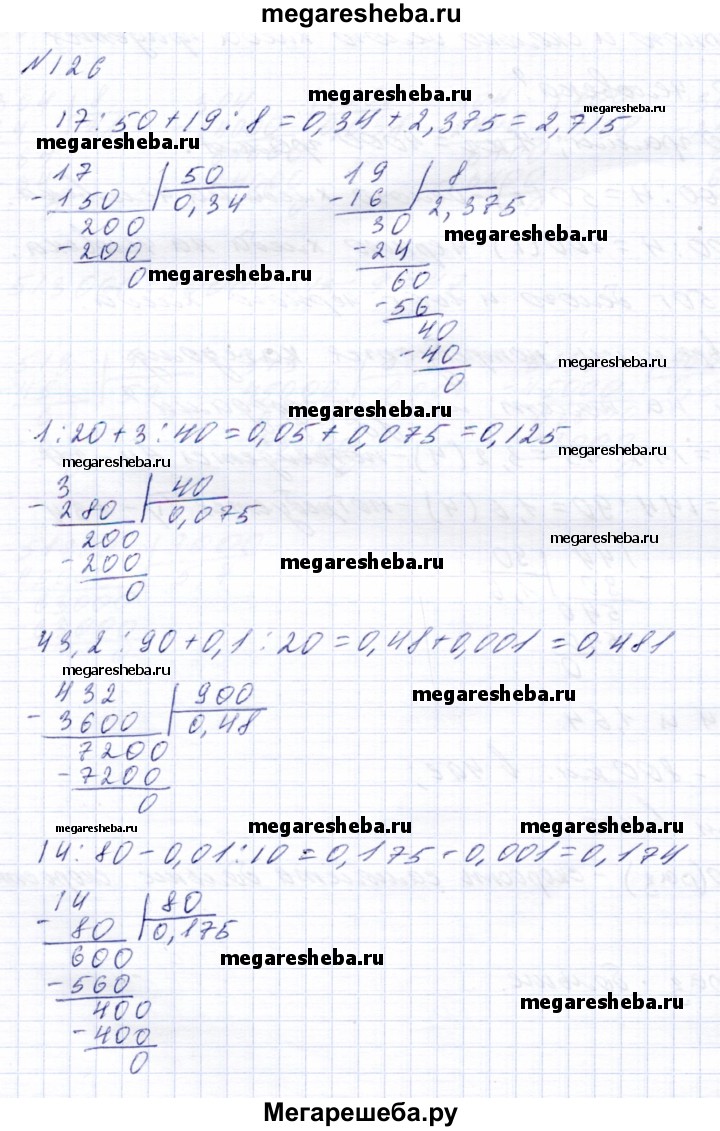 megaresheba.ru
№126
megaresheba.ru
megaresheba.ru
17:50+19:8=0,34+2,375=2,715
megaresheba.ru
17 50
-150 0,34
200
-200
0
megaresheba.ru
19 8
-16 2,375
30
megaresheba.ru
-24
60
-56
40
-40
0
megaresheba.ru
megaresheba.ru
1:20+3:40=0,05+0,075=0,125
megaresheba.ru
3 40
-280 0,075
200
-200
0
megaresheba.ru
megaresheba.ru
43,2:90+0,1:20=0,48+0,001=0,481
megaresheba.ru
megaresheba.ru
432 900
-3600 0,48
7200
-7200
0
megaresheba.ru
megaresheba.ru
megaresheba.ru
14:80-0,01:10=0,175-0,001=0,174
14 80
-80 0,175
600
-560
400
-400
0
megaresheba.ru
megaresheba.ru
Мегарешеба.ру